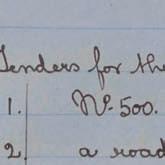 Tenders for the
1. No. 500.
2. a road